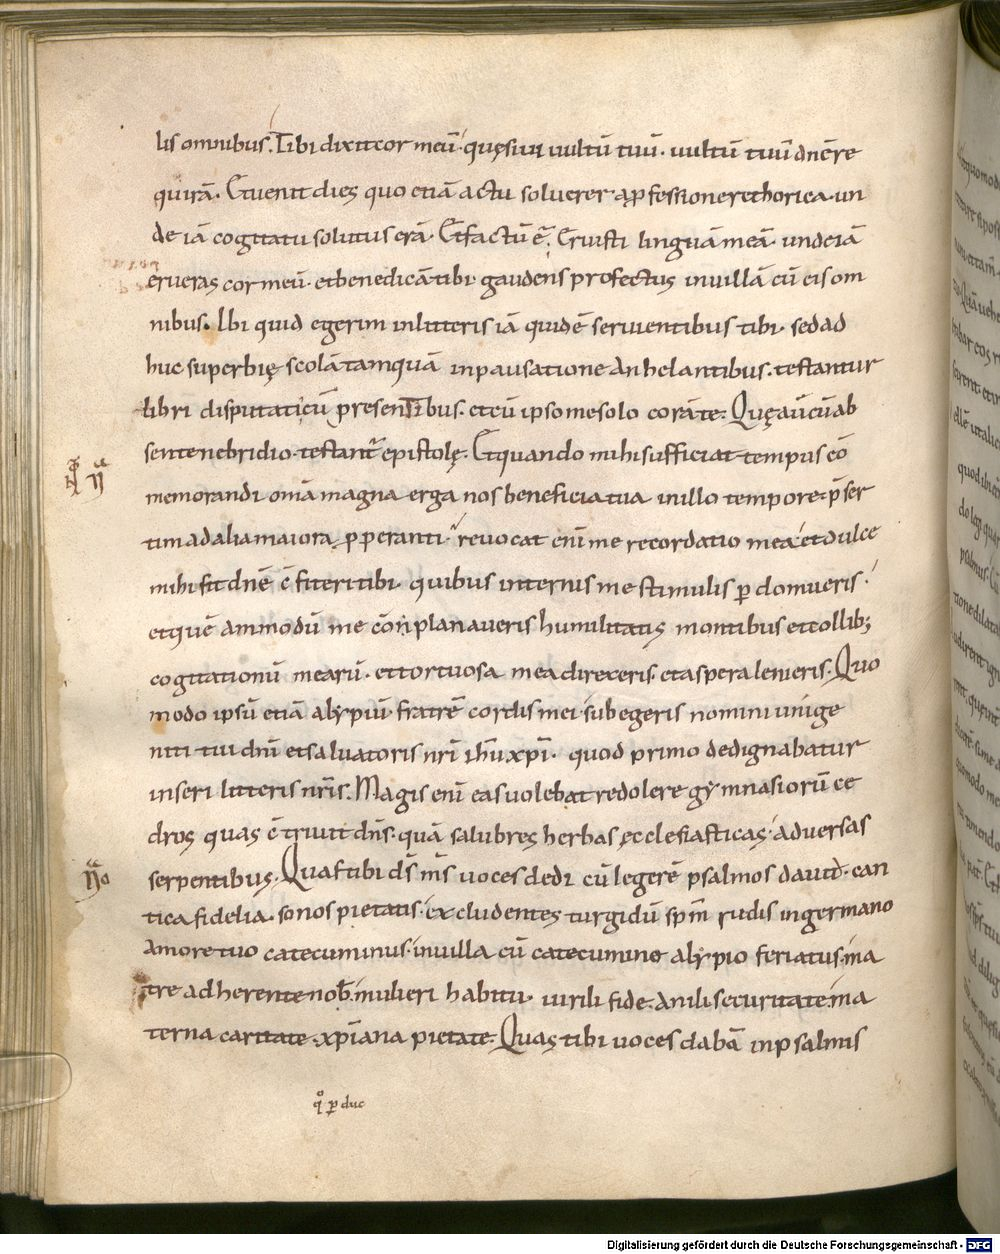 lis omnibus. Tibi dixit cor meū· quęsiui uultū tuū· uultū tuū dn̄e re
quirā. Et uenit dies quo etiā actu soluerer a ꝓfessione rethorica· un
de iā cogitatu solutus erā. Et factū ē. Eruisti linguā meā· unde iā
erueras cor meū· et benedicā tibi· gaudens profectus in uillā cū eis om
nibus. Ibi quid egerim in litteris iā quidē seruientibus tibi· sed ad
huc superbię scolā tamquā in pausatione anhelantibus· testantur
libri disputati cū presentibus· et cū ipso me solo corā te. Quę aū cū ab
sente nebridio· testant᷑ epistolę. Et quando mihi sufficiat tempus cō
memorandi om̄ia magna erga nos beneficia tua in illo tempore· p̄ser
tim ad alia maiora ꝓperanti· reuocat enī me recordatio mea· et dulce
mihi fit dn̄e c̄fiteri tibi· quibus internis me stimulis ꝑdomueris·
et quē ammodū me cōnplanaueris humilitatis montibus et collib;
cogitationū mearū· et tortuosa mea direxeris· et aspera lenieris. Quo
modo ipsū etiā alypiū fratrē cordis mei subegeris nomini unige
niti tui dn̄i et saluatoris nr̄i ih̄u xp̄i· quod primo dedignabatur
inseri litteris nr̄is. Magis enī eas uolebat redolere gymnasiorū ce
dros quas c̄triuit dn̄s· quā salubres herbas ęcclesiasticas aduersas
serpentibus. Quas tibi dś m̄s uoces dedi cū legerē psalmos dauid· can
tica fidelia· sonos pietatis· excludentes turgidū sp̄m rudis in germano
amore tuo catecuminus· in uilla cū catecumino alypio feriatus· ma
tre adherente nob̄· muliebri habitu· uirili fide· anili securitate· ma
terna caritate· xp̄iana pietate. Quas tibi uoces dabā in psalmis